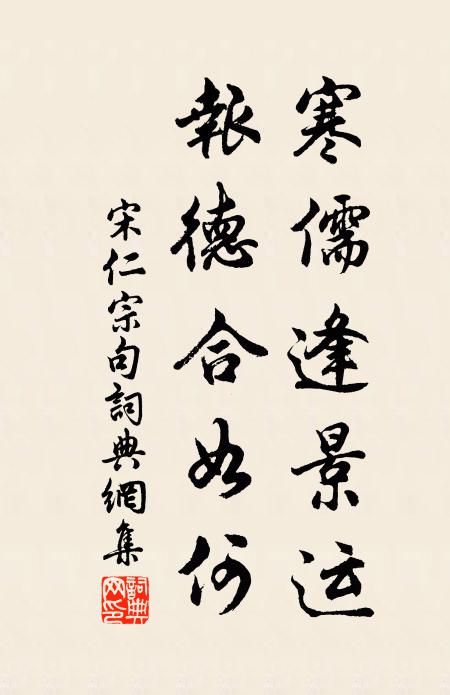 寒儒逢景运
報德合如何
宋仁宗句詞典網集
詞典网印